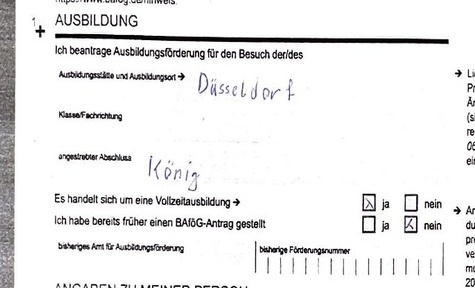 https://www.bafög.de/hinweis.
1 AUSBILDUNG
Ich beantrage Ausbildungsförderung für den Besuch der/des
Ausbildungsstätte und Ausbildungsort → Düsseldorf
Klasse/Fachrichtung
angestrebter Abschluss König
Es handelt sich um eine Vollzeitausbildung → ja nein
Ich habe bereits früher einen BAföG-Antrag gestellt ja nein
bisheriges Amt für Ausbildungsförderung bisherige Förderungsnummer
ANGABEN ZU MEINER PERSON